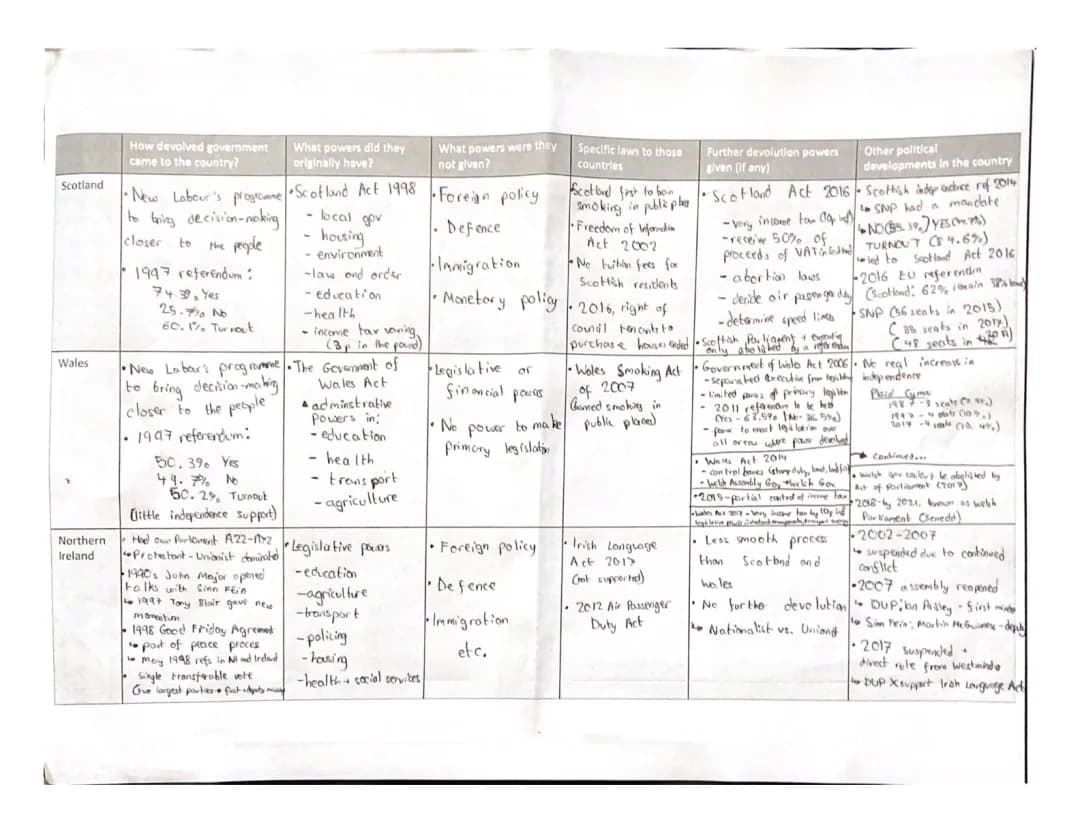 How devolved government
came to the country?
What powers did they
originally have?
What powers were they
not given?
Specific laws to those
countries
Further devolution powers
given (if any)
Other political
developments in the country
Scotland
• New Labour's programme
to bring decision-making
closer to the people
• 1997 referendum:
74.3% Yes
25.7% No
60.1% Turnout
• Scotland Act 1998
- local gov
- housing
- environment
- law and order
- education
- health
- income tax varying
(3p in the pound)
• Foreign policy
• Defence
• Immigration
• Monetary policy
Scotland first to ban
smoking in public places
• Freedom of Information
Act 2002
• No tuition fees for
Scottish residents
• 2016, right of
council tenants to
purchase houses ended
• Scotland Act 2016
- vary income tax (10p
- receive 50% of
proceeds of VAT
- abortion laws
- decide air passenger duty
- determine speed limits
• Scottish Parliament + executive
only abolished by a referendum
• Scottish independence ref 2014
↳ SNP had a mandate
↳ NO (55.3%) YES (44.7%)
TURNOUT (84.6%)
↳ led to Scotland Act 2016
• 2016 EU referendum
(Scotland: 62% remain 38% leave)
• SNP (56 seats in 2015)
( 35 seats in 2017)
( 48 seats in
Wales
• New Labour's programme
to bring decision-making
closer to the people
• 1997 referendum:
50.3% Yes
49.7% No
50.2% Turnout
(little independence support)
• The Government of
Wales Act
adminstrative
powers in:
- education
- health
- transport
- agriculture
• Legislative or
financial powers
• No power to make
primary legislation
• Wales Smoking Act
of 2007
(banned smoking in
public places)
• Government of Wales Act 2006
- separated executive from legislature
- limited powers of primary legislation
- 2011 referendum to be held
(Yes - 63.5% | No - 36.5%)
- power to enact legislation over
all areas where power devolved
• Wales Act 2014
- control taxes (stamp duty,
- Welsh Assembly Gov → Welsh Gov
• 2015 - partial control of income tax
• Wales Act 2017 - vary income tax by 10p
• No real increase in
independence
Plaid Cymru
1987 - 3 seats
1997 - 4 seats
- 4 seats (10.4%)
Continued...
• Welsh gov can't be abolished by
Act of Parliament (2017)
• 2018 - by 2021, known as Welsh
Parliament (Senedd)
Northern
Ireland
• Had own Parliament 1922-1972
↳ Protestant - Unionist dominated
• 1990s John Major opened
talks with Sinn Féin
↳ 1997 Tony Blair gave new
momentum
• 1998 Good Friday Agreement
↳ part of peace process
↳ May 1998 refs in NI and Ireland
• Single transferable vote
largest parties → first + deputy
• Legislative powers
- education
- agriculture
- transport
- policing
- housing
- health + social services
• Foreign policy
• Defence
• Immigration
etc.
• Irish Language
Act 2017
(not supported)
• 2012 Air Passenger
Duty Act
• Less smooth process
than Scotland and
Wales
• No further devolution
↳ Nationalist vs. Unionist
• 2002-2007
↳ suspended due to continued
conflict
• 2007 assembly reopened
↳ DUP: Ian Paisley - first
↳ Sinn Fein: Martin McGuinness - deputy
• 2017 suspended +
direct rule from Westminster
↳ DUP X support Irish Language Act